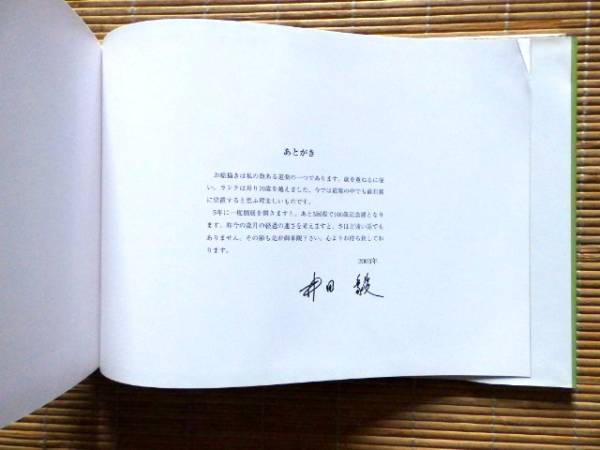 あとがき
お絵描きは私の数ある道楽の一つであります。歳を重ねるに従
い、ランクは昇り70歳を越えました。今では道楽の中でも最右翼
に位置すると思ふ程楽しいものです。
5年に一度個展を開きますと、あと5回程で100歳記念展となり
ます。昨今の歳月の経過の速さを考えますと、さほど遠い話でも
ありません。その節も是非御来観下さい。心よりお待ち致してお
ります。
2003年
神田